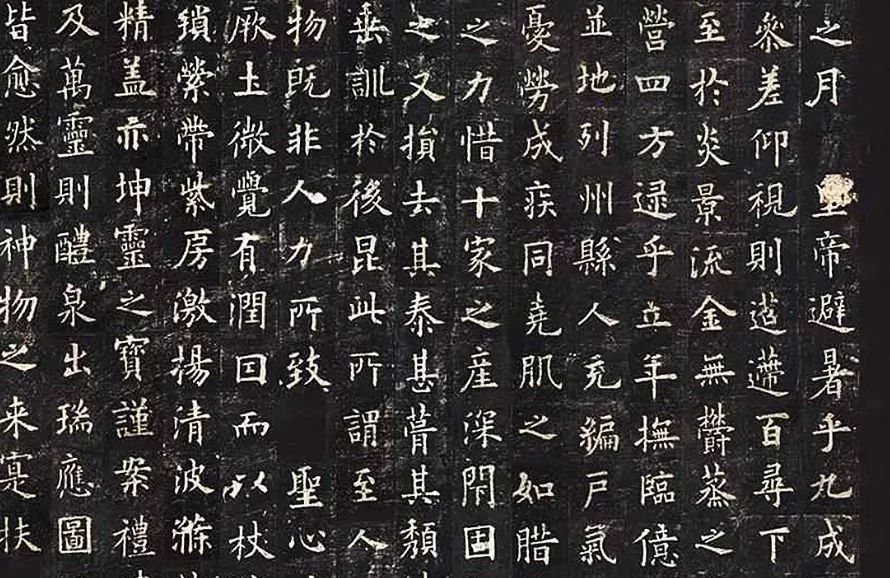 之月皇帝避暑乎九成
參差仰視則迢遰百尋下
至於炎景流金無鬱蒸之
營四方逮乎立年撫臨億
並地列州縣人充編戶氣
憂勞成疾同堯肌之如腊
之力惜十家之產深閇固
之又損去其泰甚葺其頹
垂訓於後昆此所謂至人
物既非人力所致 聖心
厥土微覺有潤因而以杖
瑣縈帶紫房激揚清波滌
精盖亦坤靈之寶謹案禮
及萬靈則醴泉出瑞應圖
皆愈然則神物之来寔扶